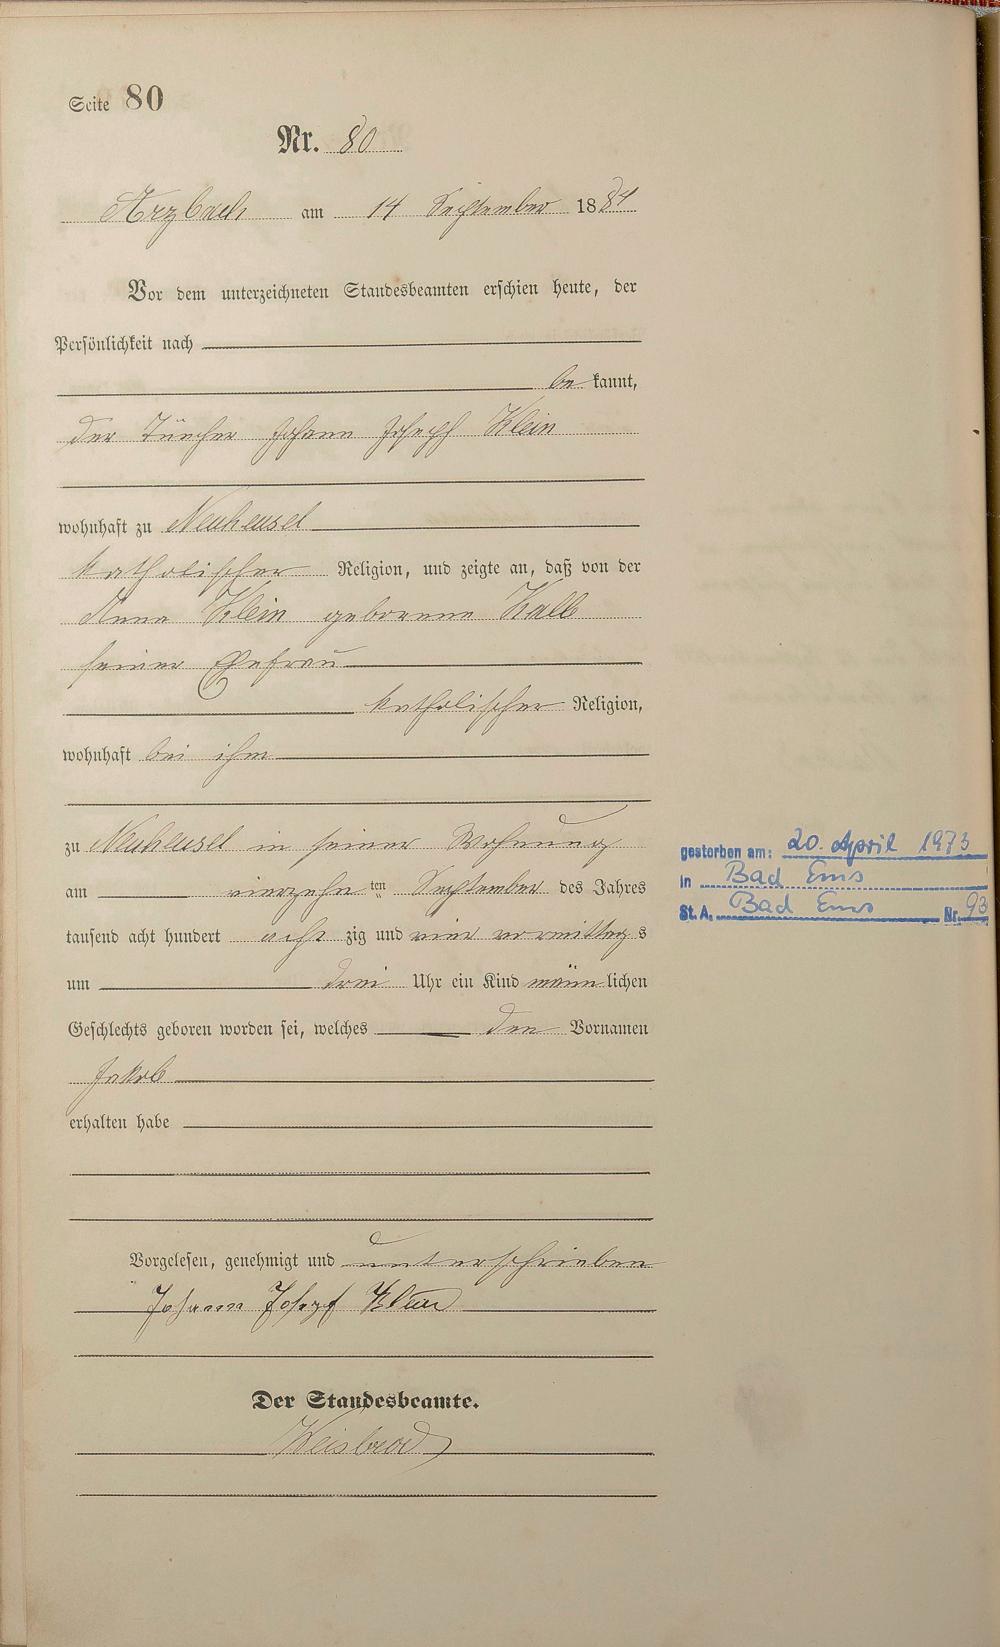 Seite 80
Nr. 80
Arzbach am 14 September 1884
Vor dem unterzeichneten Standesbeamten erschien heute, der
Persönlichkeit nach
be kannt,
der Tüncher Johann Joseph Klein
wohnhaft zu Neuheusel
katholischer Religion, und zeigte an, daß von der
Anna Klein geborene Kalb
seiner Ehefrau
katholischer Religion,
wohnhaft bei ihm
zu Neuheusel in seiner Wohnung
am vierzehn ten September des Jahres
tausend acht hundert acht zig und vier vormittags
um drei Uhr ein Kind männlichen
Geschlechts geboren worden sei, welches den Vornamen
Jakob
erhalten habe
Vorgelesen, genehmigt und unterschrieben
Johann Josepf Klein
Der Standesbeamte.
Weisbrod
gestorben am: 20. April 1973
in Bad Ems
St. A. Bad Ems Nr. 93